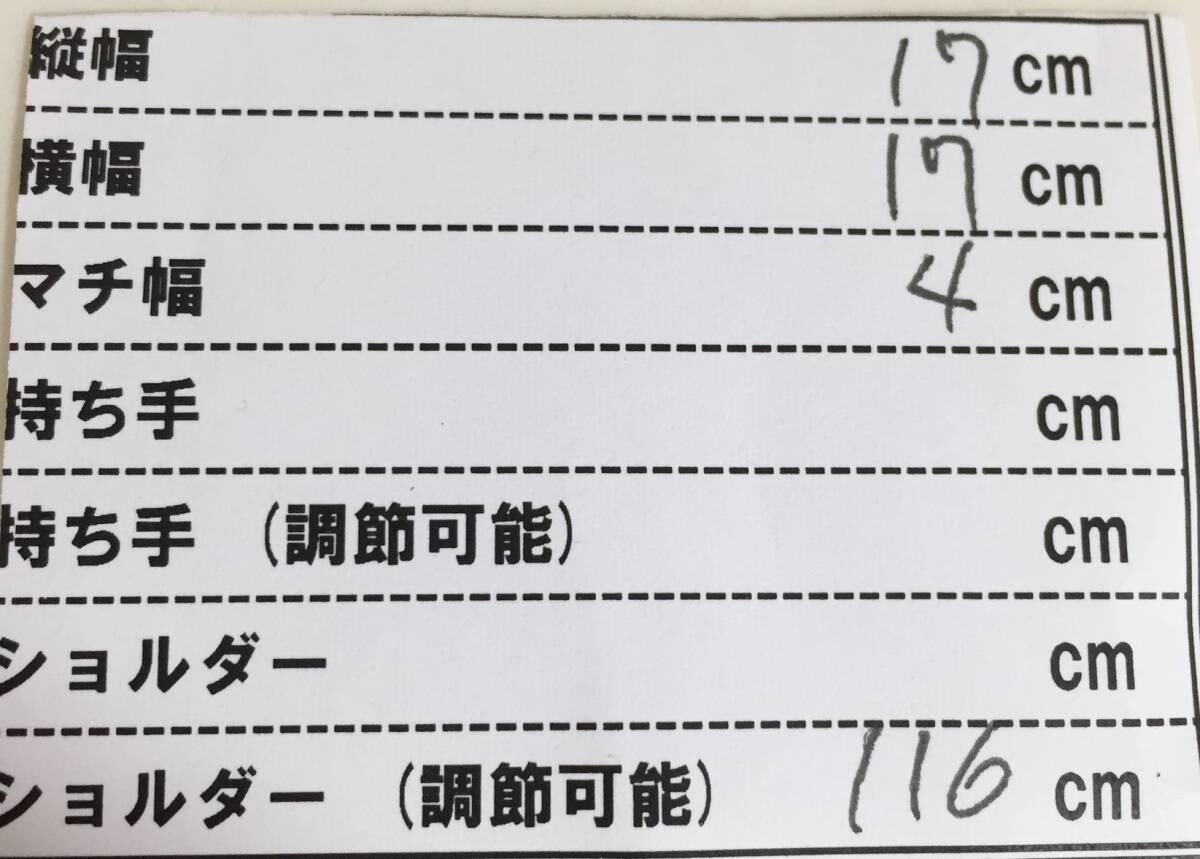 縦幅 17 cm
横幅 17 cm
マチ幅 4 cm
持ち手 cm
持ち手 (調節可能) cm
ショルダー cm
ショルダー (調節可能) 116 cm